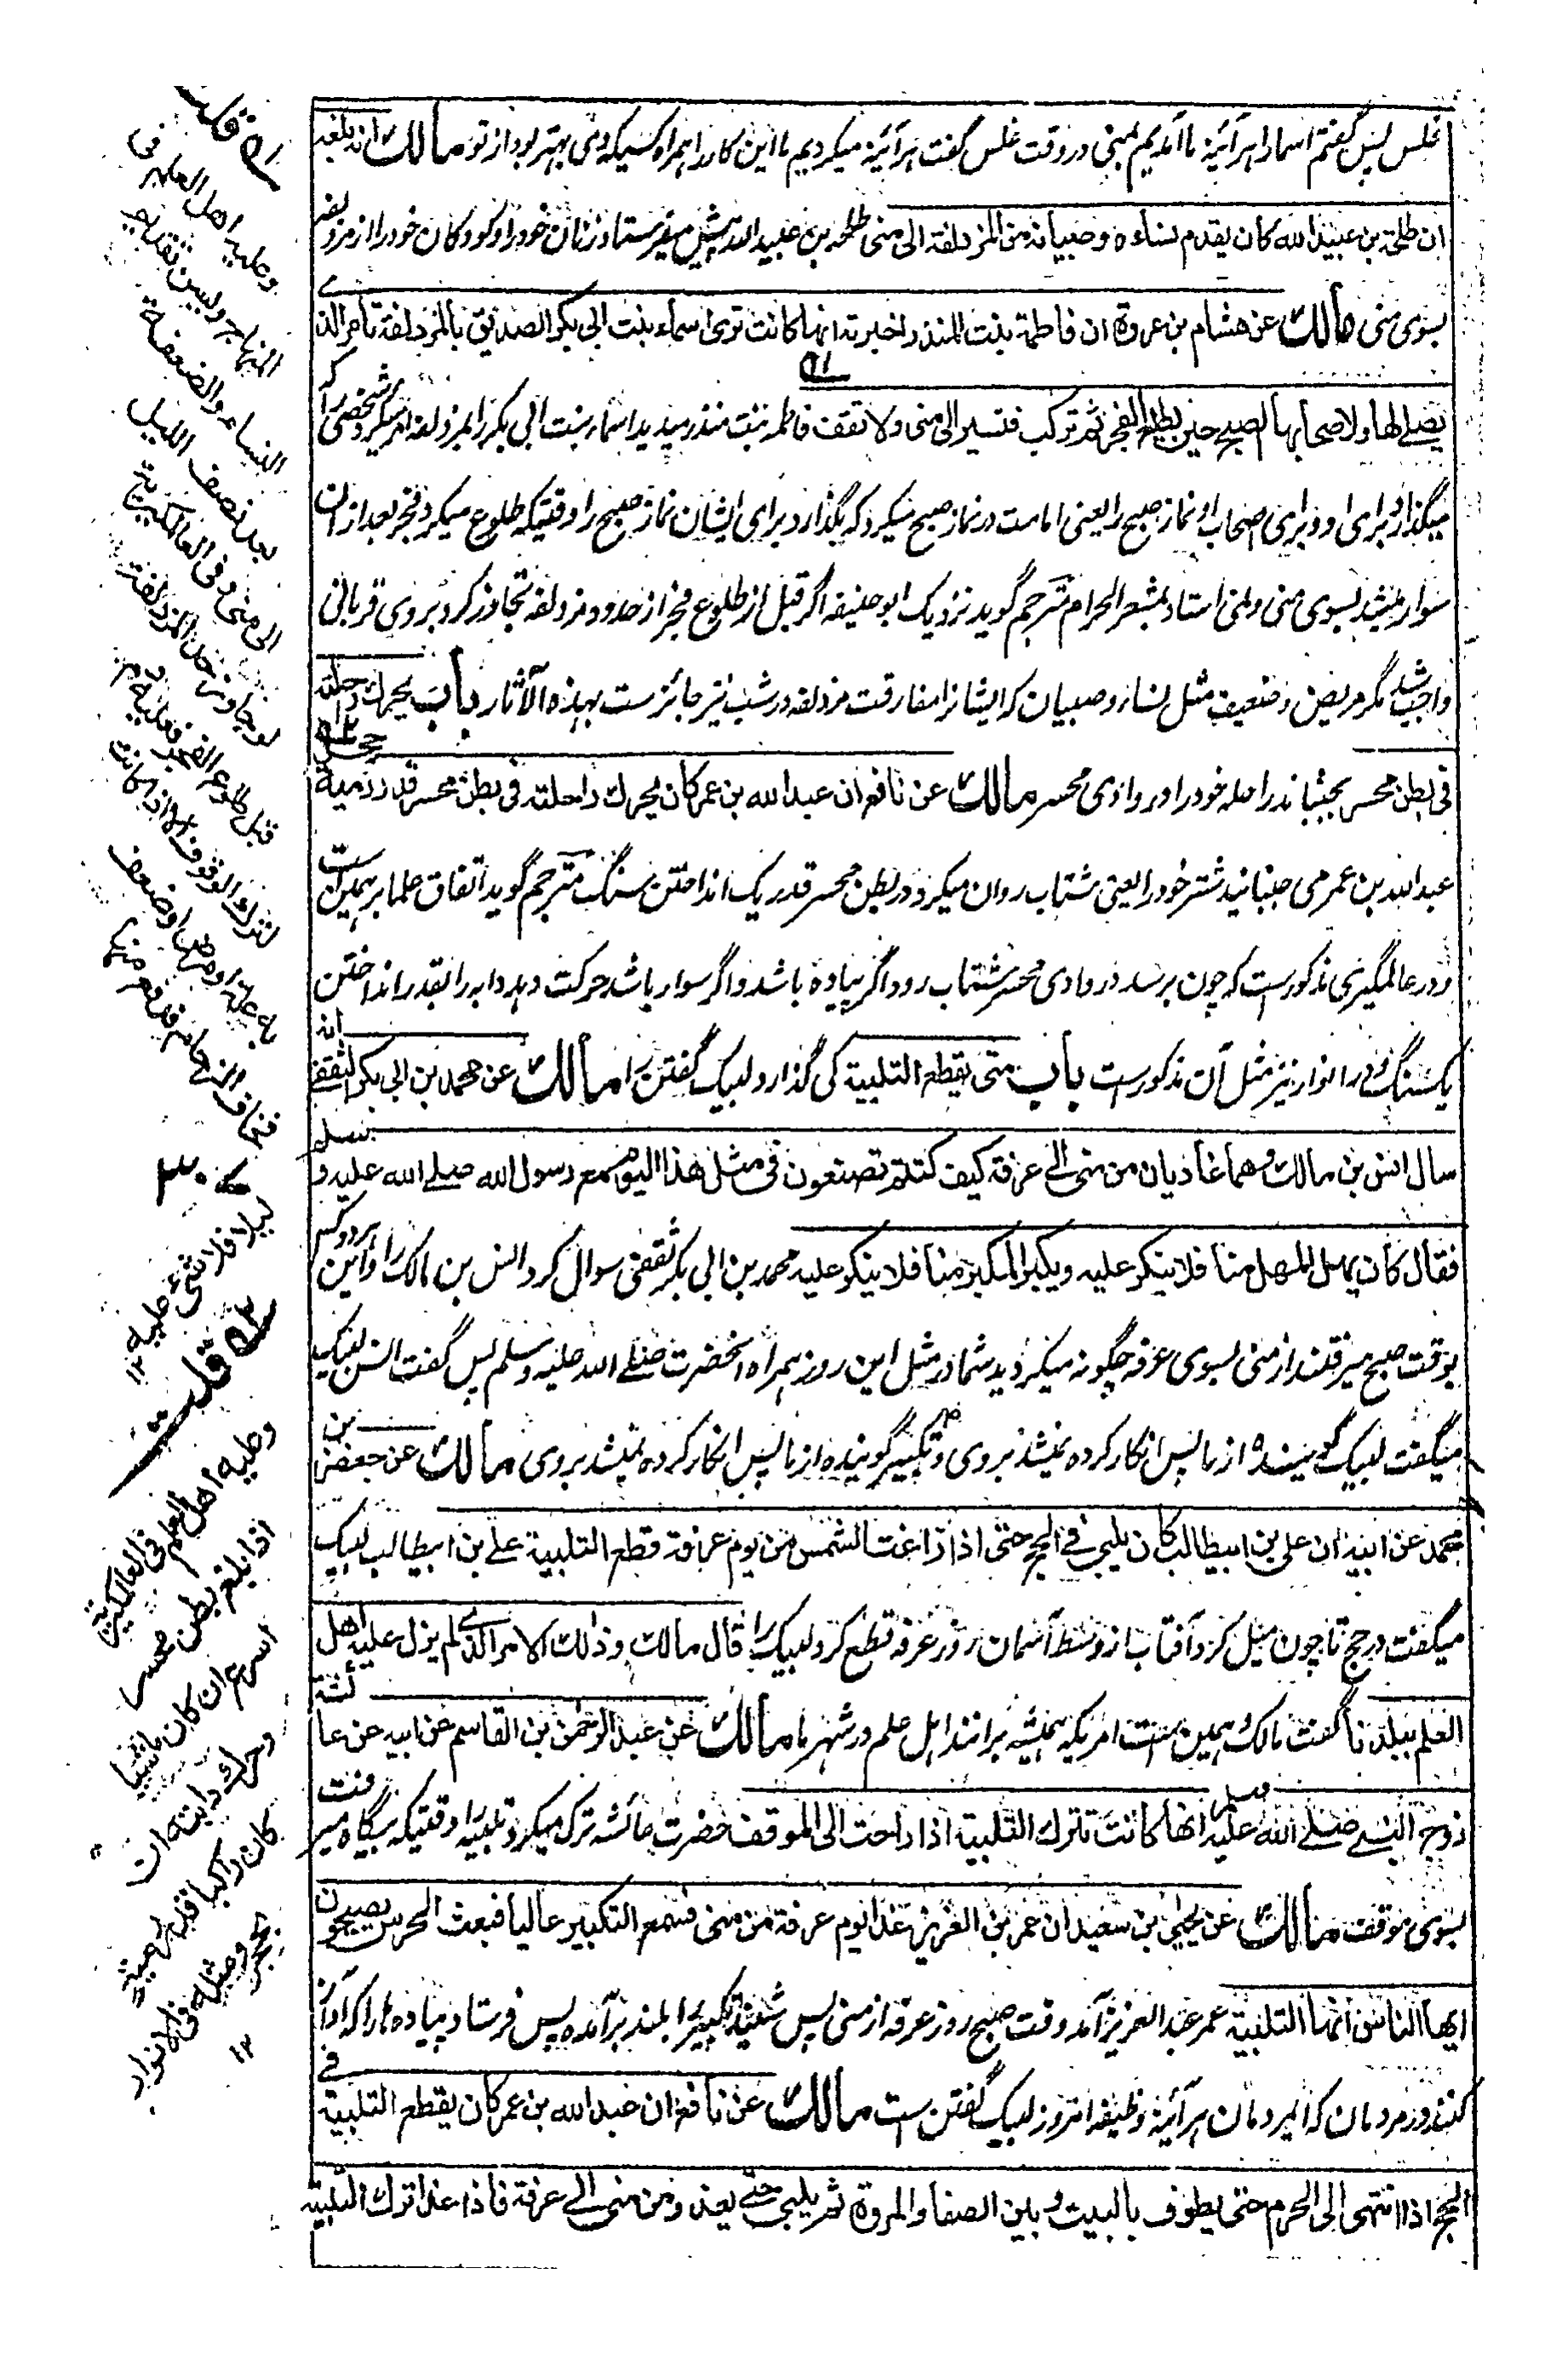 غلس پس گفتم اسما را هرآئینه ما آمدیم بمنی در وقت غلس گفت هرآئینه میکردیم ما این کار را همراه کسیکه وی بهتر بود از تو مالك انه بلغه
ان طلحة بن عبید الله کان یقدم نساءه وصبیانه من المزدلفة الی منی طلحه بن عبید الله پیش میفرستاد زنان خود را و کودکان خود را از مزدلفه
بسوی منی مالك عن هشام بن عروة ان فاطمة بنت المنذر اخبرته انها کانت تری اسماء بنت ابی بکر الصدیق بالمزدلفة تأمر الذی
یصلے لها ولاصحابها الصبح حین یطلع الفجر ثم ترکب فتسیر الی منی ولا تقف فاطمه بنت منذر میدید اسماء بنت ابی بکر را بمزدلفه امر میکرد شخصی را که
میگذارد برای او و برای اصحاب او نماز صبح را یعنی امامت در نماز صبح میکرد که بگذارد برای ایشان نماز صبح را وقتیکه طلوع میکرد فجر بعد ازان
سوار میشد بسوی منی و نمی استاد بمشعر الحرام مترجم گوید نزدیک ابو حنیفه اگر قبل از طلوع فجر از حدود مزدلفه تجاوز کرد بر وی قربانی
واجب شد مگر مریض و ضعیف مثل نساء و صبیان که ایشانرا مفارقت مزدلفه در شب نیز جائزست بهذه الآثار باب یحرك راحلته
فی بطن محسر بجنباند راحله خود را در وادی محسر مالك عن نافع ان عبد الله بن عمر کان یحرك راحلته فی بطن محسر قدر رمیة بحجر
عبد الله بن عمر می جنبانید شتر خود را یعنی شتاب روان میکرد در بطن محسر قدر یک انداختن سنگ مترجم گوید اتفاق علما بر همین است
و در عالمگیری مذکورست که چون برسد در وادی محسر شتاب رود اگر پیاده باشد و اگر سوار باشد حرکت دهد دابه را بقدر انداختن
یک سنگ و در انوار نیز مثل آن مذکورست باب متی یقطع التلبیة کی گذارد لبیک گفتن را مالك عن محمد بن ابی بکر الثقفی انه
سال انس بن مالك وهما غادیان من منی الے عرفة کیف کنتم تصنعون فی مثل هذا الیوم مع رسول الله صلے الله علیه وسلم
فقال کان یهل المهل منا فلا ینکر علیه ویکبر المکبر منا فلا ینکر علیه محمد بن ابی بکر ثقفی سوال کرد انس بن مالک را و این هر دو کس
بوقت صبح میرفتند از منی بسوی عرفه چگونه میکردید شما در مثل این روز همراه آنحضرت صلے الله علیه وسلم پس گفت انس لبیک
میگفت لبیک گوینده از ما پس انکار کرده نمیشد بروی و تکبیر گوینده از ما پس انکار کرده نمیشد بروی مالك عن جعفر بن
محمد عن ابیه ان علی بن ابیطالب کان یلبی فے الحج حتی اذا زاغت الشمس من یوم عرفة قطع التلبیة علے بن ابیطالب لبیک
میگفت در حج تا چون میل کرد آفتاب از وسط آسمان روز عرفه قطع کرد لبیک را قال مالك وذلك الامر الذے لم یزل علیه اهل
العلم ببلدنا گفت مالک و همین ست امریکه همیشه برانند اهل علم در شهر ما مالك عن عبد الرحمن بن القاسم عن ابیه عن عائشة
زوج النبے صلے الله علیه وسلم انها کانت تترك التلبیة اذا راحت الی الموقف حضرت عائشه ترک میکرد تلبیه را وقتیکه بیگاه میرفت
بسوی موقف مالك عن یحیی بن سعید ان عمر بن العزیز غدا یوم عرفة من منی فسمع التکبیر عالیا فبعث الحرس یصیحون
ایها الناس انها التلبیة عمر عبد العزیز آمد وقت صبح روز عرفه از منی پس شنید تکبیر را بلند برآمده پس فرستاد پیاده ها را که آواز
کنند در مردمان که ایمردمان هرآئینه وظیفه امروز لبیک گفتن ست مالك عن نافع ان عبد الله بن عمر کان یقطع التلبیة فی
الحج اذا انتهی الی الحرم حتی یطوف بالبیت وبین الصفا والمروة ثم یلبی حتے یغدو من منی الے عرفة فاذا غدا ترك التلبیة
قلت
وعلیه اهل العلم فی
المنهاج ویسن تقدیم
النساء والضعفة
بعد نصف اللیل
الی منی وفی العالمکیریة
لو جاوز حد المزدلفة
قبل طلوع الفجر فعلیه دم
لترك الوقوف الا اذا کانت
به علة او مرض او ضعف
فخاف الزحام فدفع منها
لیلا فلا شیء علیه ۱۲
قلت
وعلیه اهل العلم فی العالمکیریة
اذا بلغ بطن محسر
اسرع ان کان ماشیا
وحرك دابته ان
کان راکبا قدر رمیة
بحجر ومثله فی الانوار
۱۲